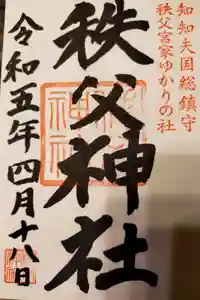 知知夫国総鎮守
秩父宮家ゆかりの社
秩父神社
令和五年四月十八日